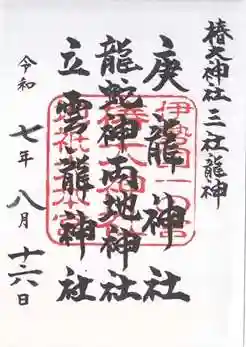 椿大神社 三社龍神
庚龍神社
龍蛇神両地神社
立雲龍神社
令和七年八月十六日
伊勢国一之宮